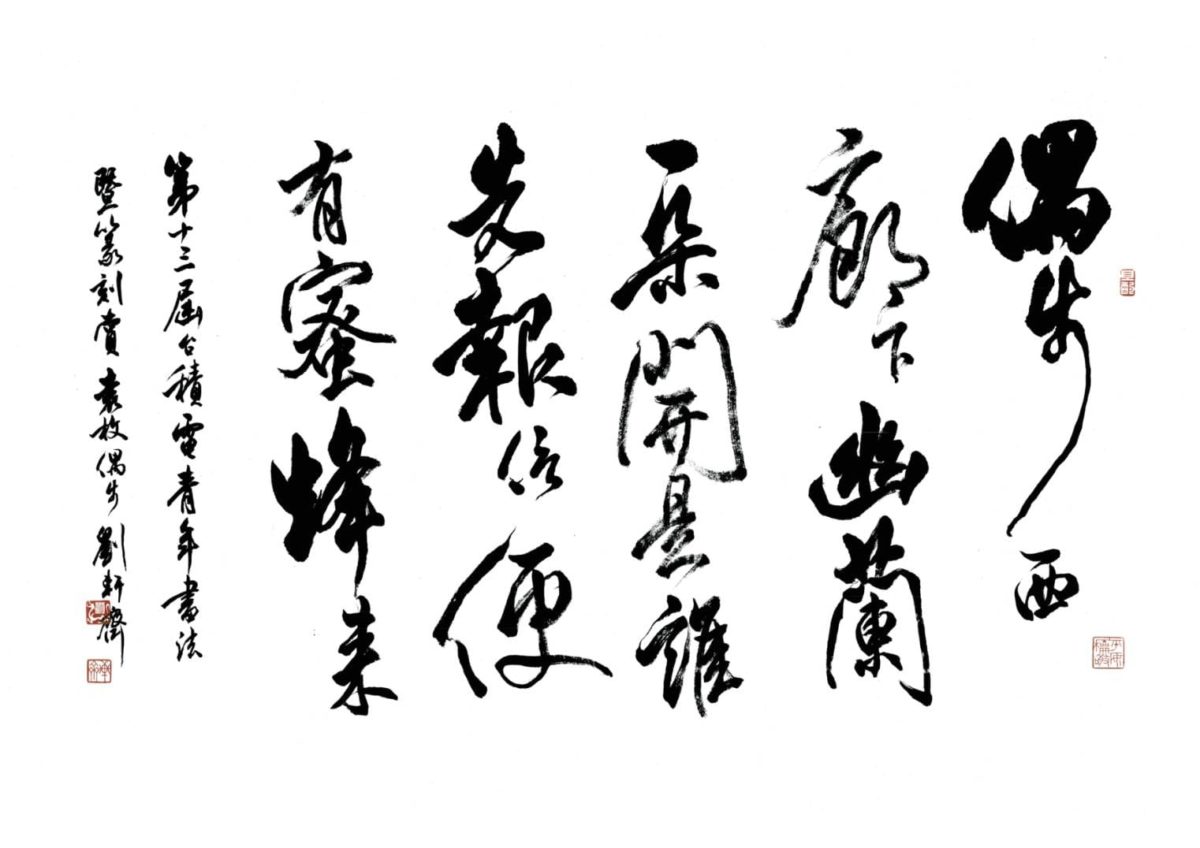 偶步西
廊下幽蘭
一朵開是誰
先報信便
有蜜蜂来
第十三屆台積電青年書法
暨篆刻賞 袁枚偶步 劉軒齊